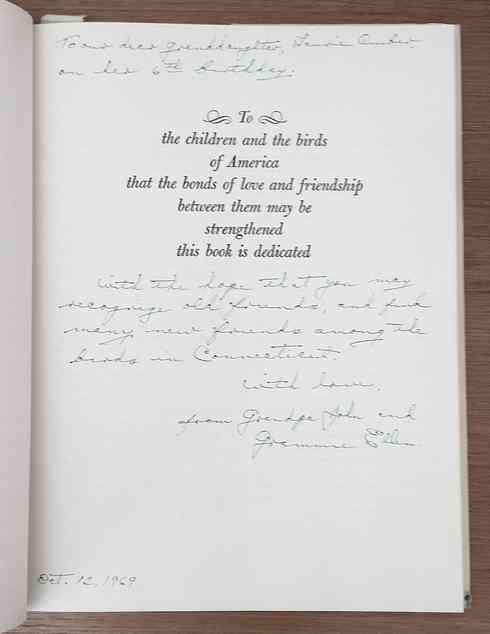 To our dear granddaughter, Laurie Amber
on her 6th birthday.
To
the children and the birds
of America
that the bonds of love and friendship
between them may be
strengthened
this book is dedicated
With the hope that you may
recognize old friends, and find
many new friends among the
birds in Connecticut.
With love,
from Grandpa John and
Grammie Ellen
Oct. 12, 1969